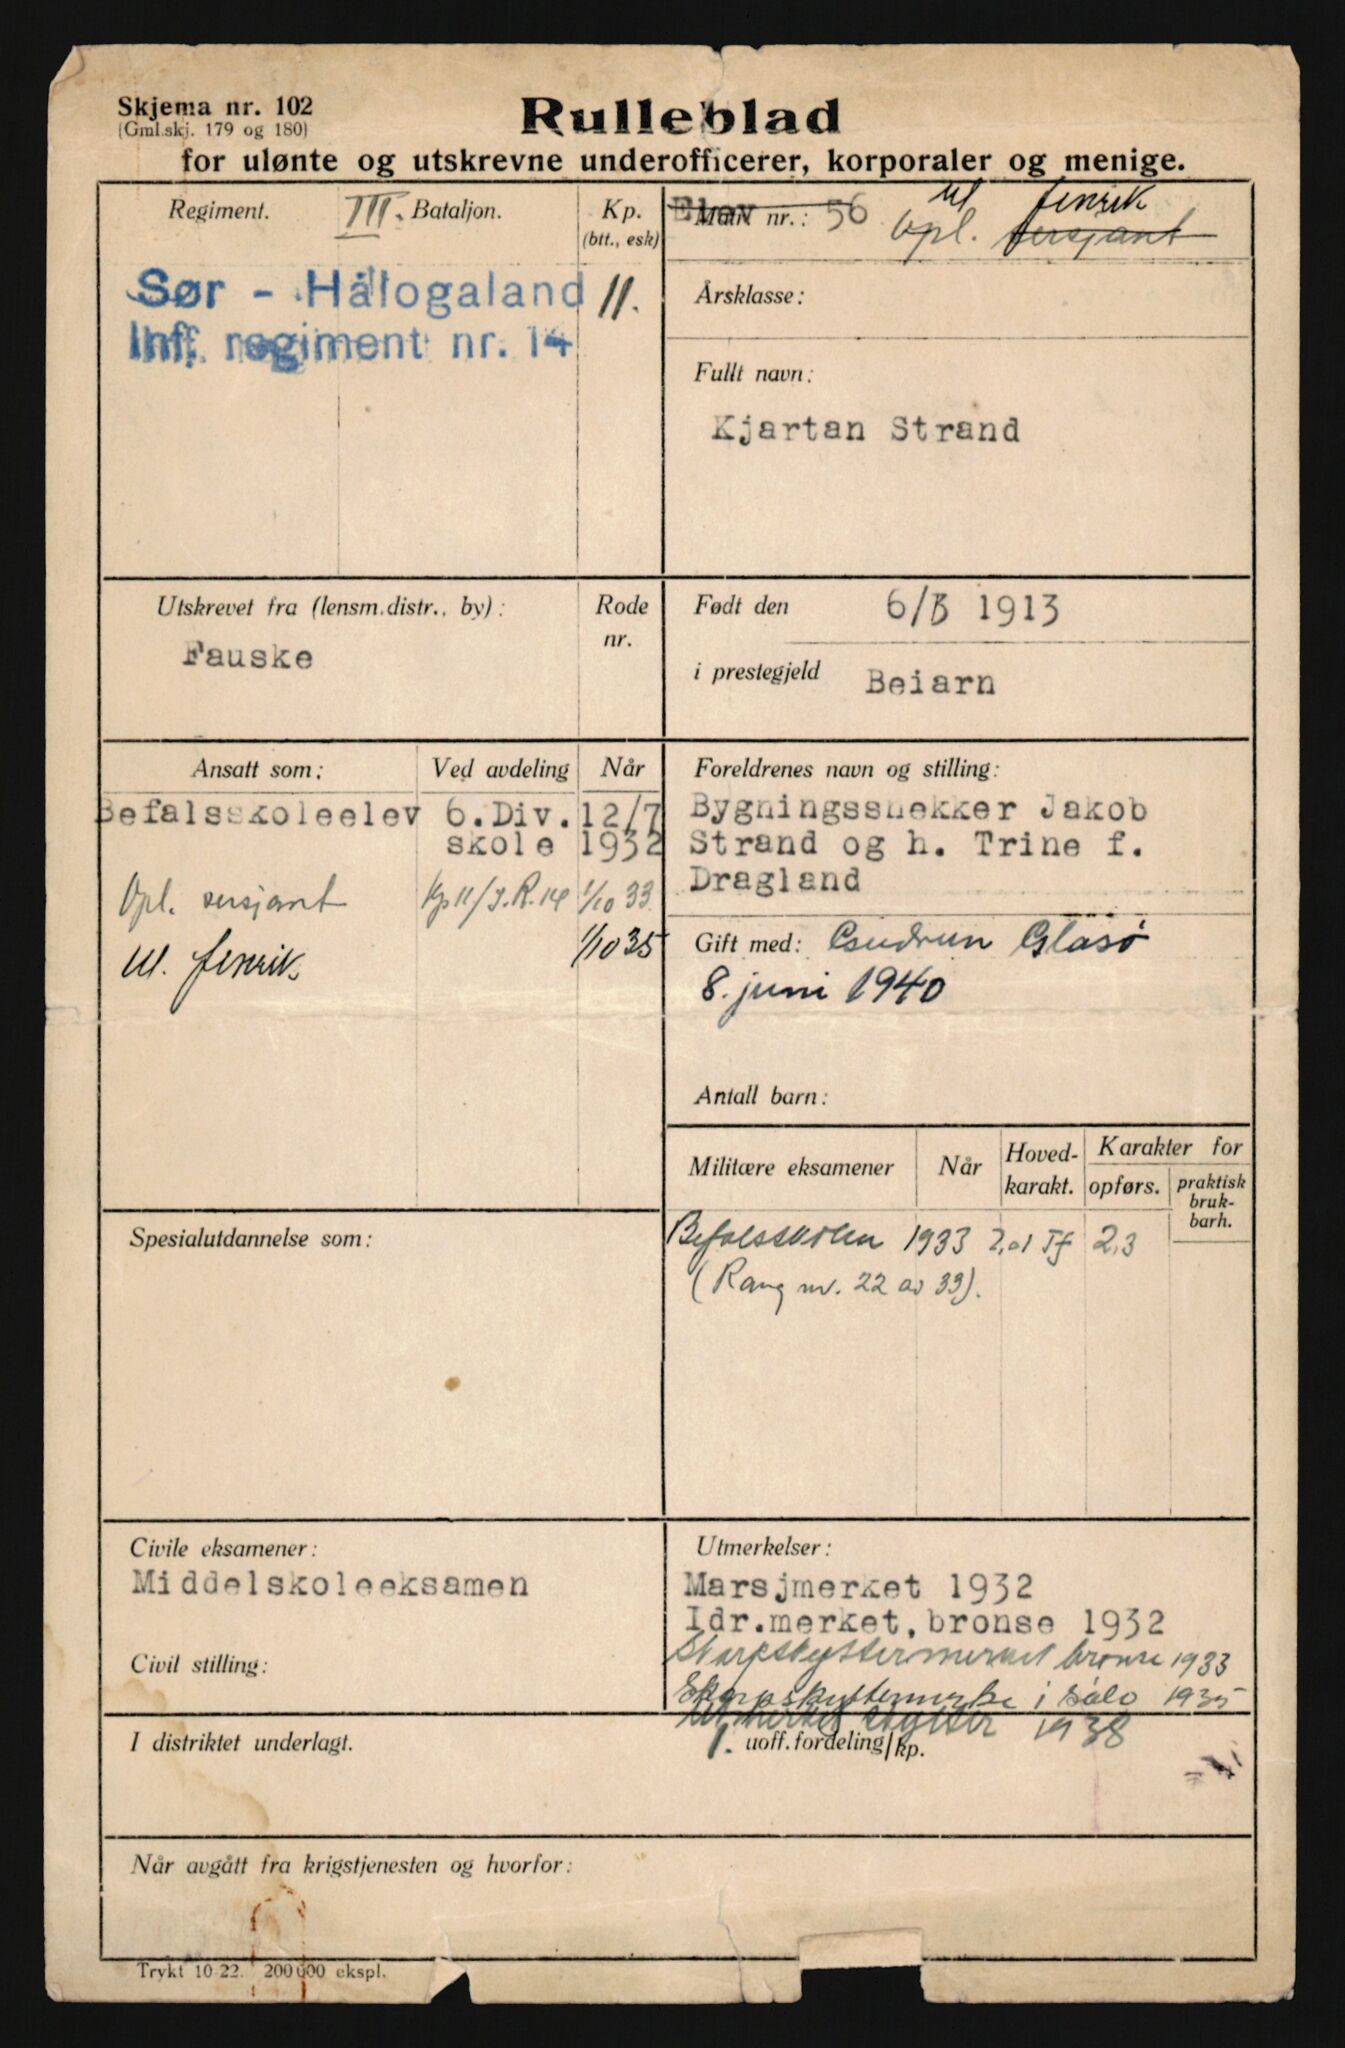 Skjema nr. 102
(Gml.skj. 179 og 180)
Rulleblad
for ulønte og utskrevne underofficerer, korporaler og menige.
Regiment.
III. Bataljon.
Kp.
(btt., esk)
Sør - Hålogaland
Inf. regiment nr. 14
11.
Elev nr.: 56
Vpl. sersjant
fenrik
Årsklasse:
Fullt navn:
Kjartan Strand
Utskrevet fra (lensm.distr., by):
Fauske
Rode
nr.
Født den 6/3 1913
i prestegjeld Beiarn
Ansatt som: Ved avdeling Når
Befalsskoleelev 6. Div. 12/7
skole 1932
Vpl. sersjant Kp 11/I.R.14 1/10 33
Ul. fenrik 1/10 35
Foreldrenes navn og stilling:
Bygningssnekker Jakob
Strand og h. Trine f.
Dragland
Gift med: Gudrun Glåsø
8. juni 1940
Antall barn:
Militære eksamener Når Hoved-
karakt. Karakter for
opførs. praktisk
bruk-
barh.
Befalsskolen 1933 2,01 Tf 2,3
(Rang nr. 22 av 33).
Spesialutdannelse som:
Civile eksamener:
Middelskoleeksamen
Civil stilling:
Utmerkelser:
Marsjmerket 1932
Idr.merket, bronse 1932
Skarpskyttermerket bronse 1933
Skarpskyttermerke i sølv 1935
skytter 1938
I distriktet underlagt.
1. uoff.fordeling/kp.
Når avgått fra krigstjenesten og hvorfor:
Trykt 10-22. 200 000 ekspl.